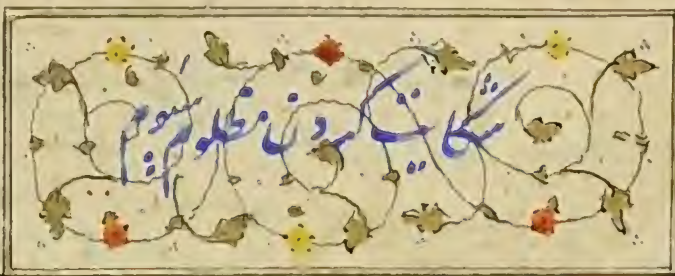 شکایت کردن مظلوم سوم